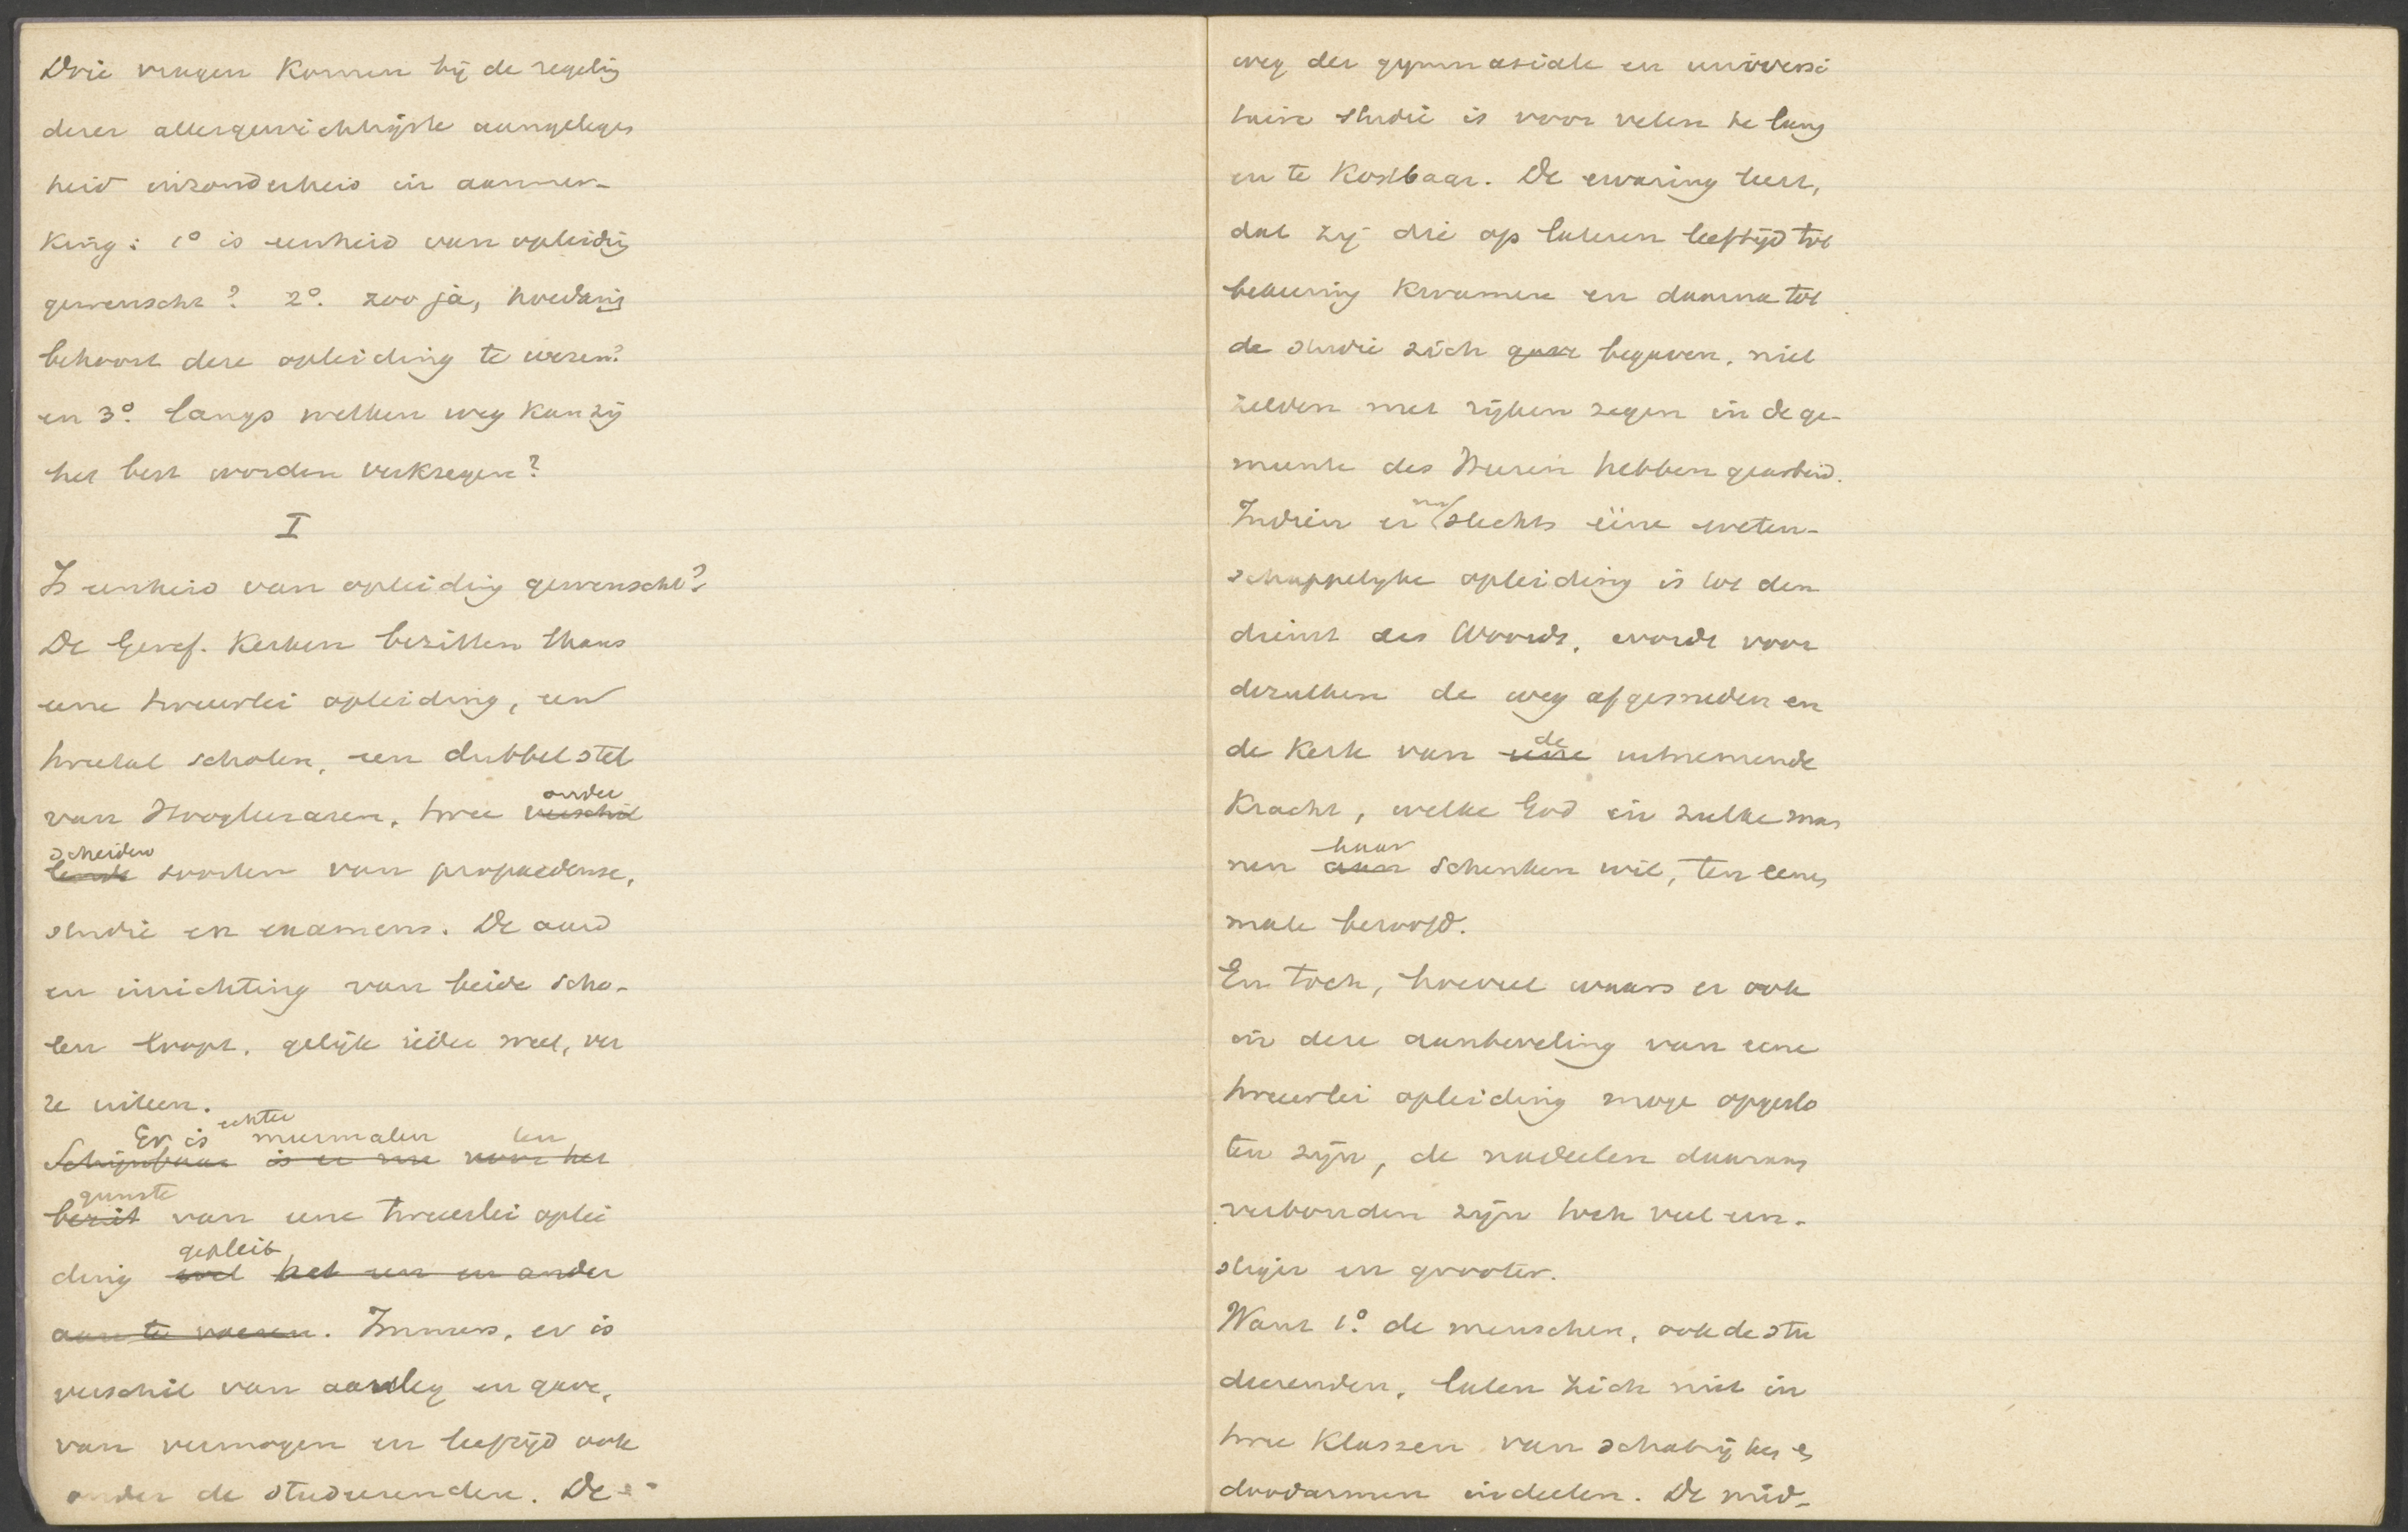 Drie vragen komen bij de regelig
dezer allergewichtigste aangelegen
heid inzonderheid in aanmer-
king: 1º is eenheid van opleidig
gewenscht? 2º. zoo ja, hoedanig
behoort deze opleiding te wezen?
en 3º. langs welken weg kan zij
het best worden verkregen?
I
Is eenheid van opleidig gewenscht?
De Geref. Kerken bezitten thans
eene tweeërlei opleiding, een
tweetal scholen, een dubbel stel
van Hoogleeraren, twee verschil
onder
scheiden
lende soorten van propaedeuse,
studie en examens. De aard
en inrichting van beide scho-
len loopt, gelijk ieder weet, ver
re uiteen.
echter
Er is meermalen ten
Schijnbaar is er voor het
gunste
bezit van eene tweeerlei oplei
gepleit
ding wel het een en ander
aan te voeren. Immers, er is
verschil van aanleg en gave,
van vermogen en leeftijd ook
onder de studeerenden. De
weg der gymnasiale en universi
taire studie is voor velen te lang
en te kostbaar. De ervaring leert,
dat zij die op lateren leeftijd tot
bekeering kwamen en daarna tot
de studie zich begaven, niet
zelden met rijken zegen in de ge-
meente des Heeren hebben gearbeid.
nu
Indien er slechts ééne weten-
schappelijke opleiding is tot den
dienst des Woords, wordt voor
dezulken de weg afgesneden en
de
de Kerk van eene uitnemende
kracht, welke God in zulke man
haar
nen aan schenken wil, ten eenen
male beroofd.
En toch, hoeveel waars er ook
in deze aanbeveling van eene
tweeërlei opleiding moge opgeslo
ten zijn, de nadeelen daaraan
verbonden zijn toch veel ern-
stiger en grooter.
Want 1º. de menschen, ook de stu
deerenden, laten zich niet in
twee klassen van schatrijken en
doodarmen indeelen. De mid-